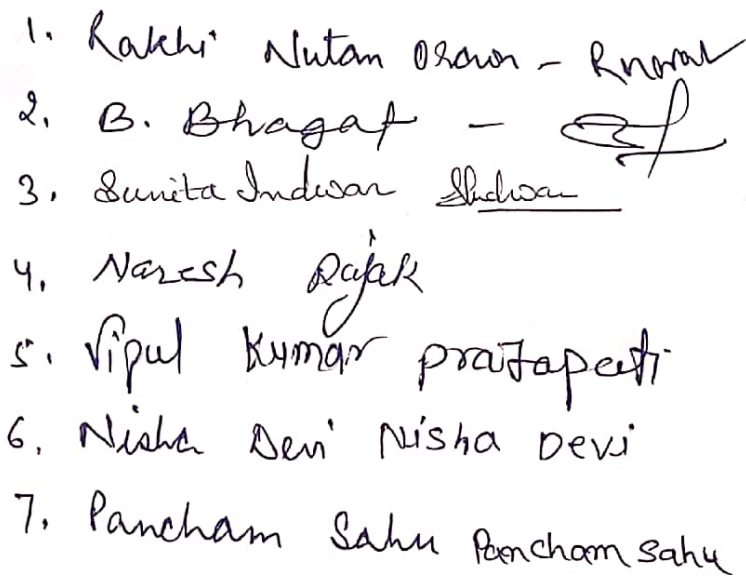 1. Rakhi Nutan Oraon - RNoraon
2. B. Bhagat -
3. Sunita Indwar SIndwar
4. Naresh Rajak
5. Vipul Kumar prajapati
6. Nisha Devi Nisha Devi
7. Pancham Sahu Pancham Sahu